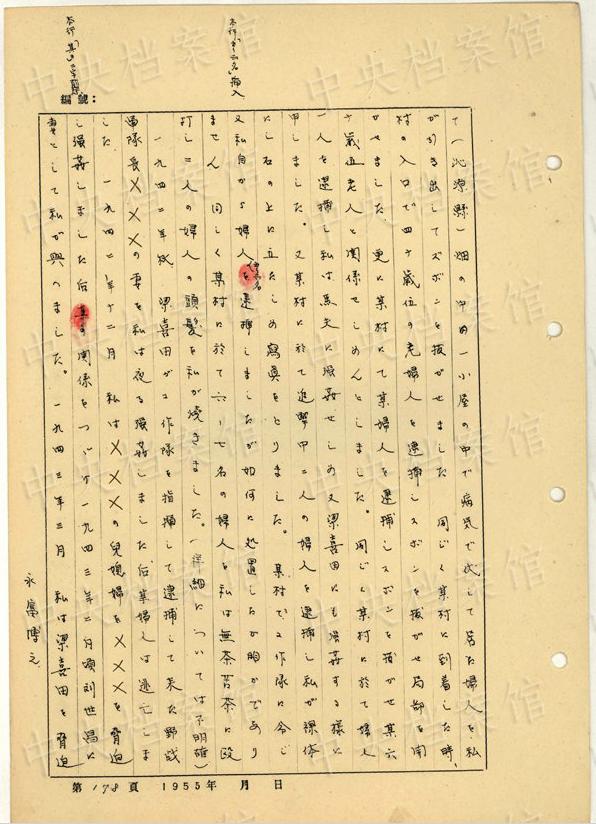 本行「其の」二字削除
本行「か二名」插入
編號：
て（沁源縣）畑の中の一小屋の中で病気で伏して居た婦人を私
が引き出してズボンを抜がせました 同じく某村に到着した時、
村の入口で四十歳位の老婦人を逮捕しズボンを抜がせ局部を開
かせました 更に某村にて某婦人を逮捕しズボンを抜かせ某六
十歳位老人と関係せしめんとしました。同じく某村に於て婦人
一人を逮捕し私は馬夫に強姦せしめ又梁喜田にも強姦する様に
申しました。又某村に於て追撃中二人の婦人を逮捕し私が裸体
にし石の上に立たしめ寫真をとりました。某村で工作隊に令し
又私自から婦人を逮捕しましたが如何に処置したか明かであり
ません 同じく某村に於て六、七名の婦人を私は無茶苦茶に殴
打し二人の婦人の頭髪を私が焼きました。（詳細については不明確）
一九四二年秋 梁喜田が工作隊を指揮して逮捕して来た野戦
軍隊長×××の妻を私は夜る強姦しました后某婦人は逃亡しま
した 一九四二年十二月 私は×××の兒媳婦を×××を脅迫
し強姦しました后其の関係をつゞけ一九四三年二月頃刘世昌に
妻として私が與へました。一九四三年三月 私は梁喜田を脅迫
永富博之
第178頁 1955年 月 日
中央档案馆